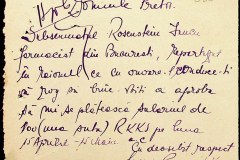 Domnule
Subsemnatul Rosenstein
farmacist din București, repartizat
la raionul ce cu onoare conduceți
vă rog să bine-voiți a aproba
să mi se plătească salariul de
100 (una sută) RKKS pe luna
15 Aprilie
Cu deosebit respect